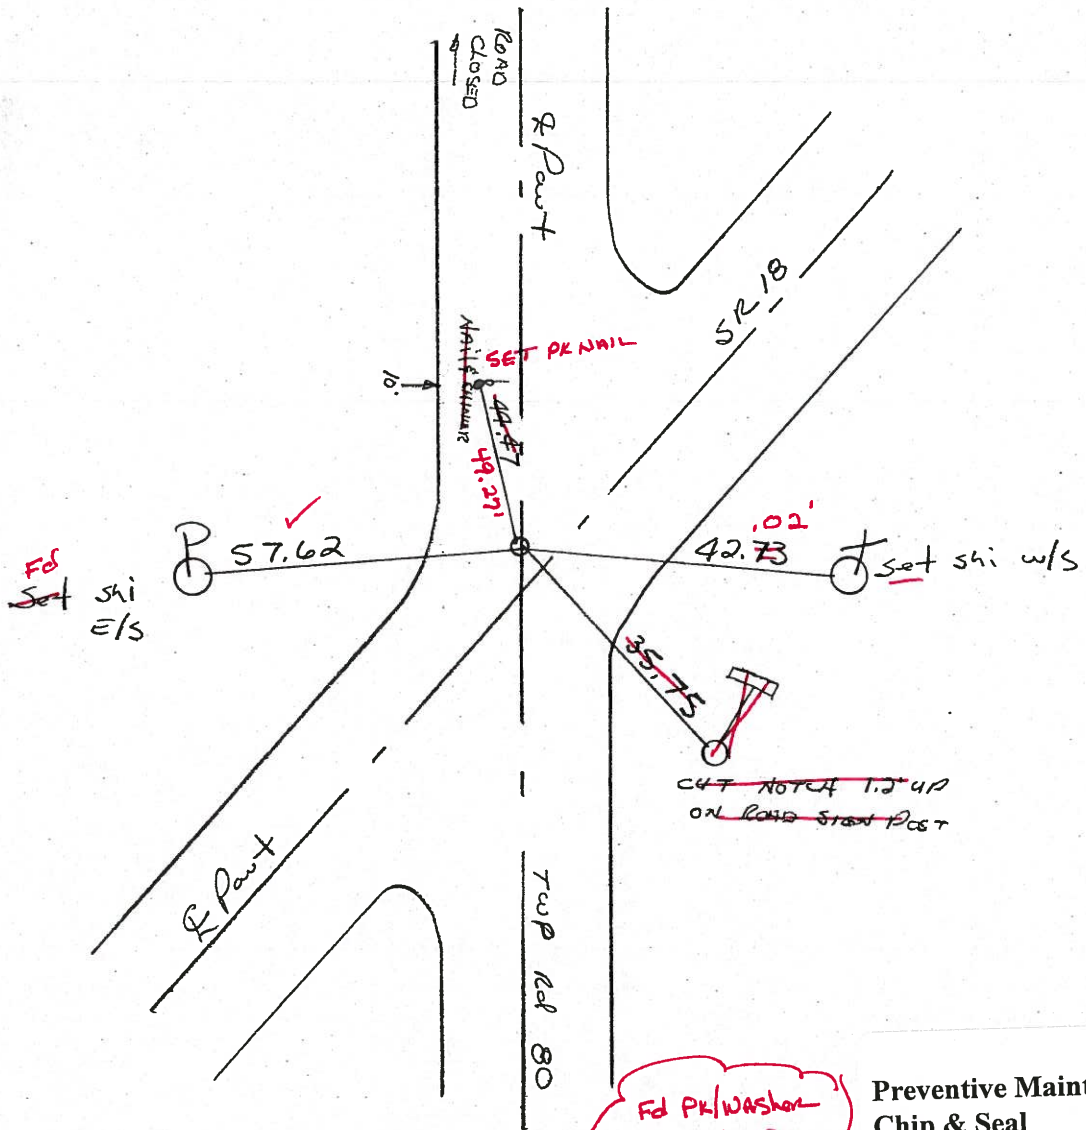 ROAD
CLOSED
℄ Pavt
SR 18
NAIL & SHINER
SET PK NAIL
10'
44.47
49.27'
57.62
.02'
42.73
Fd
Set shi
E/S
set shi w/s
35.75
CUT NOTCH 1.2' UP
ON ROAD SIGN POST
℄ Pavt
TWP Rd 80
Fd PK/WASHER
Preventive Maint
Chip & Seal